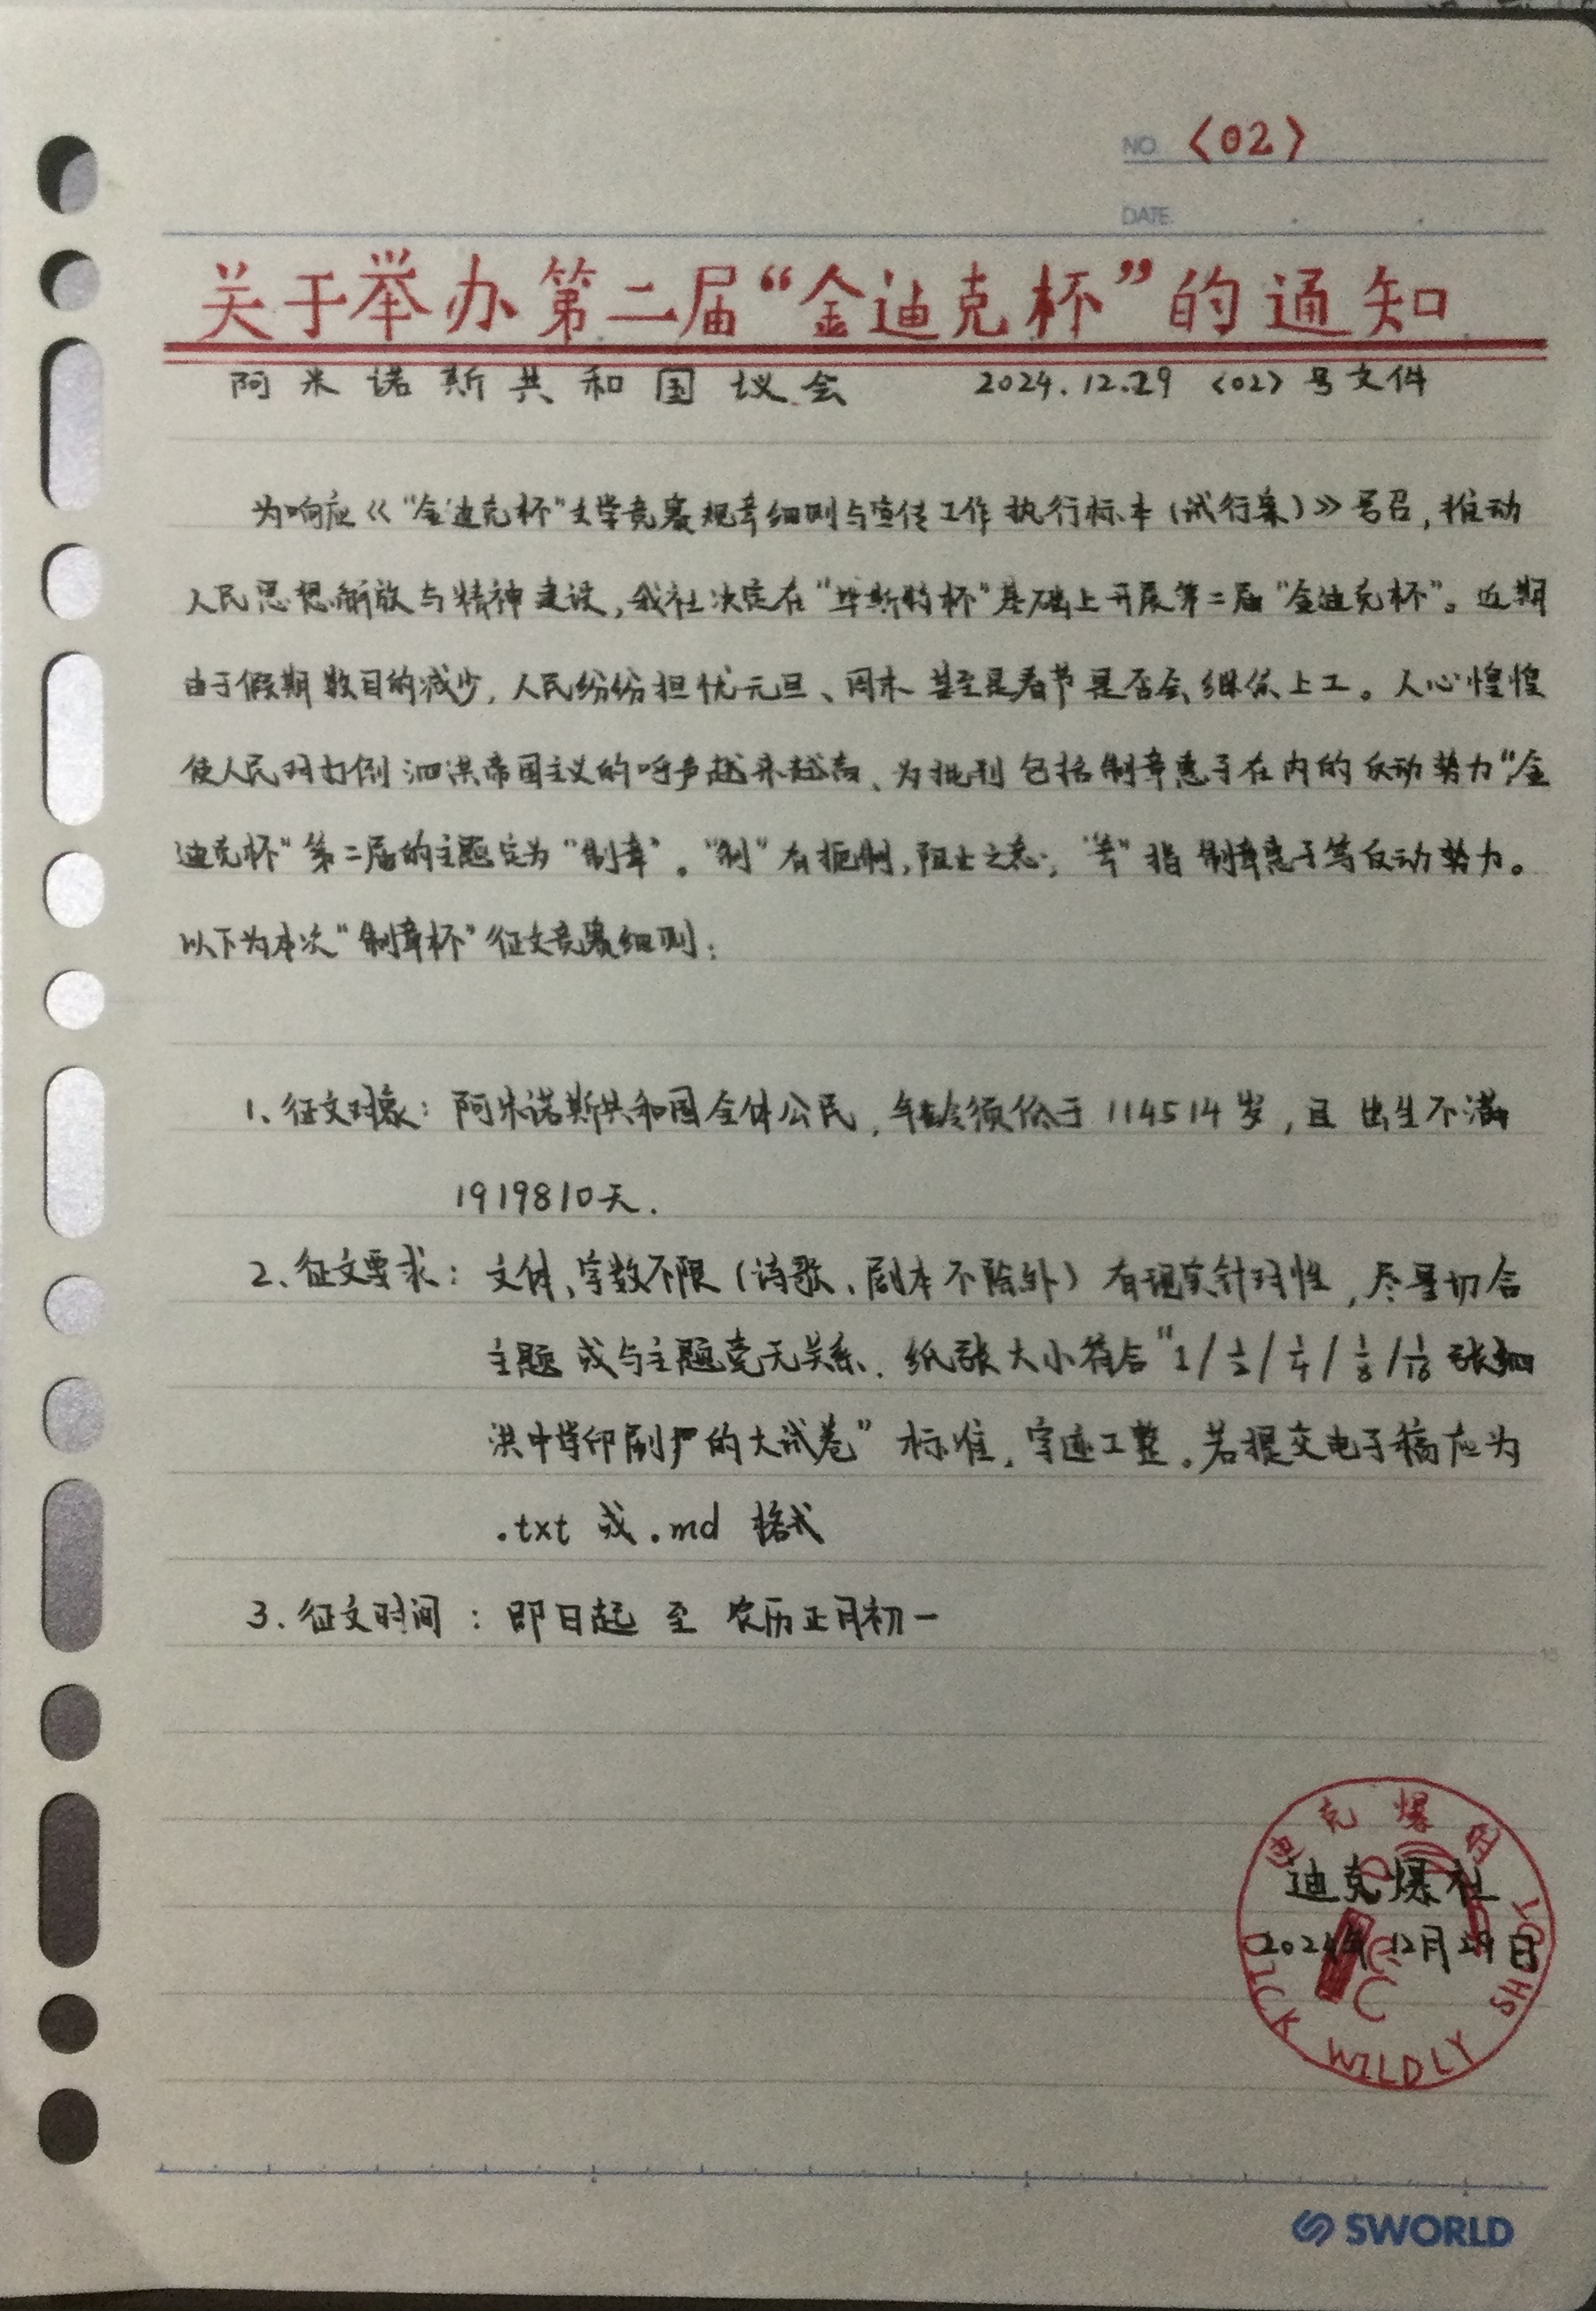 NO. <02>
DATE.
关于举办第二届“金迪克杯”的通知
阿米诺斯共和国议会 2024.12.29 <02>号文件
为响应《“金迪克杯”文学竞赛规章细则与宣传工作执行标本(试行案)》号召,推动
人民思想解放与精神建设,我社决定在“毕斯特杯”基础上开展第二届“金迪克杯”。近期
由于假期数目的减少,人民纷纷担忧元旦、周末甚至是春节是否会继续上工。人心惶惶
使人民对打倒泗洪帝国主义的呼声越来越高、为批判包括制章惠子在内的反动势力“金
迪克杯”第二届的主题定为“制章”。“制”有扼制,阻止之意;“章”指制章惠子等反动势力。
以下为本次“制章杯”征文竞赛细则:
1、征文对象: 阿米诺斯共和国全体公民,年龄须低于114514岁,且出生不满
1919810天.
2、征文要求: 文体、字数不限(诗歌、剧本不除外)有现实针对性,尽量切合
主题或与主题毫无关系. 纸张大小符合“1/½/¼/⅛/1/16张泗
洪中学印刷厂的大试卷”标准,字迹工整。若提交电子稿应为
.txt 或 .md 格式
3.征文时间: 即日起 至 农历正月初一
迪克爆
迪克爆社
2024年12月29日
DICK WILDLY SHOOT
SWORLD